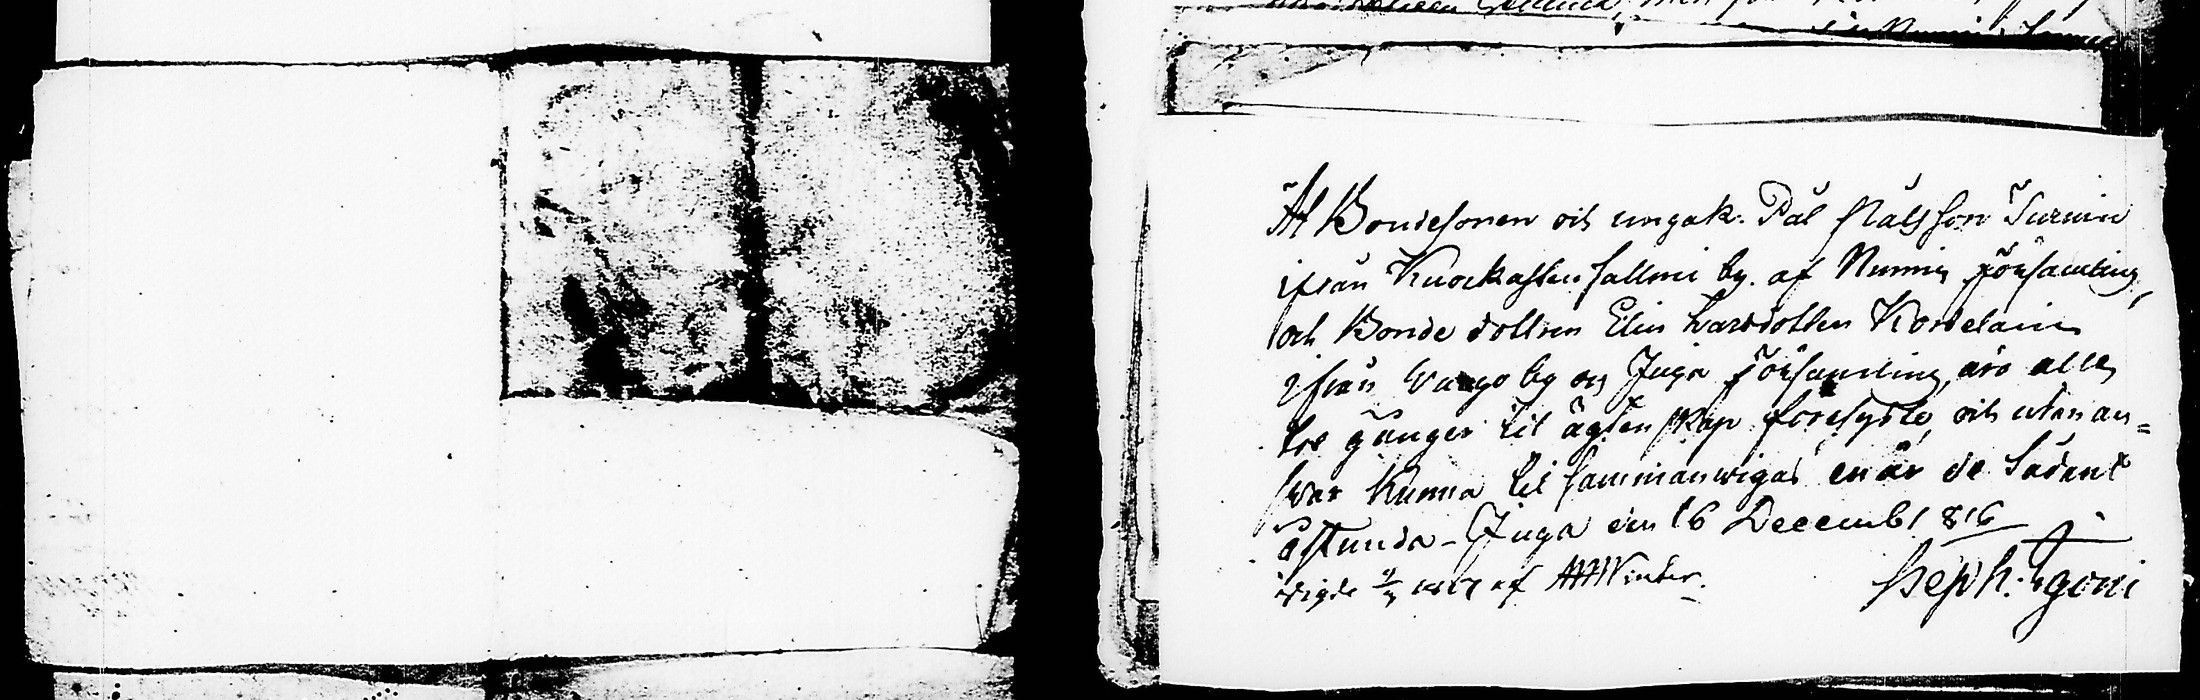 At Bondesonen och ungak. Pål Pålsson Turuin
ifrån by. af Nurmis församling,
och Bonde dottren Elin Larsdotter
ifrån by og Juga församling, äro alla
tre gånger til ägtenskap förelyste, och utan an=
svar kunna til sammanwigas en är de sådant
åstunda - Juga den 16 Decemb 1816
wigde 1817 af Winter.
Steph.